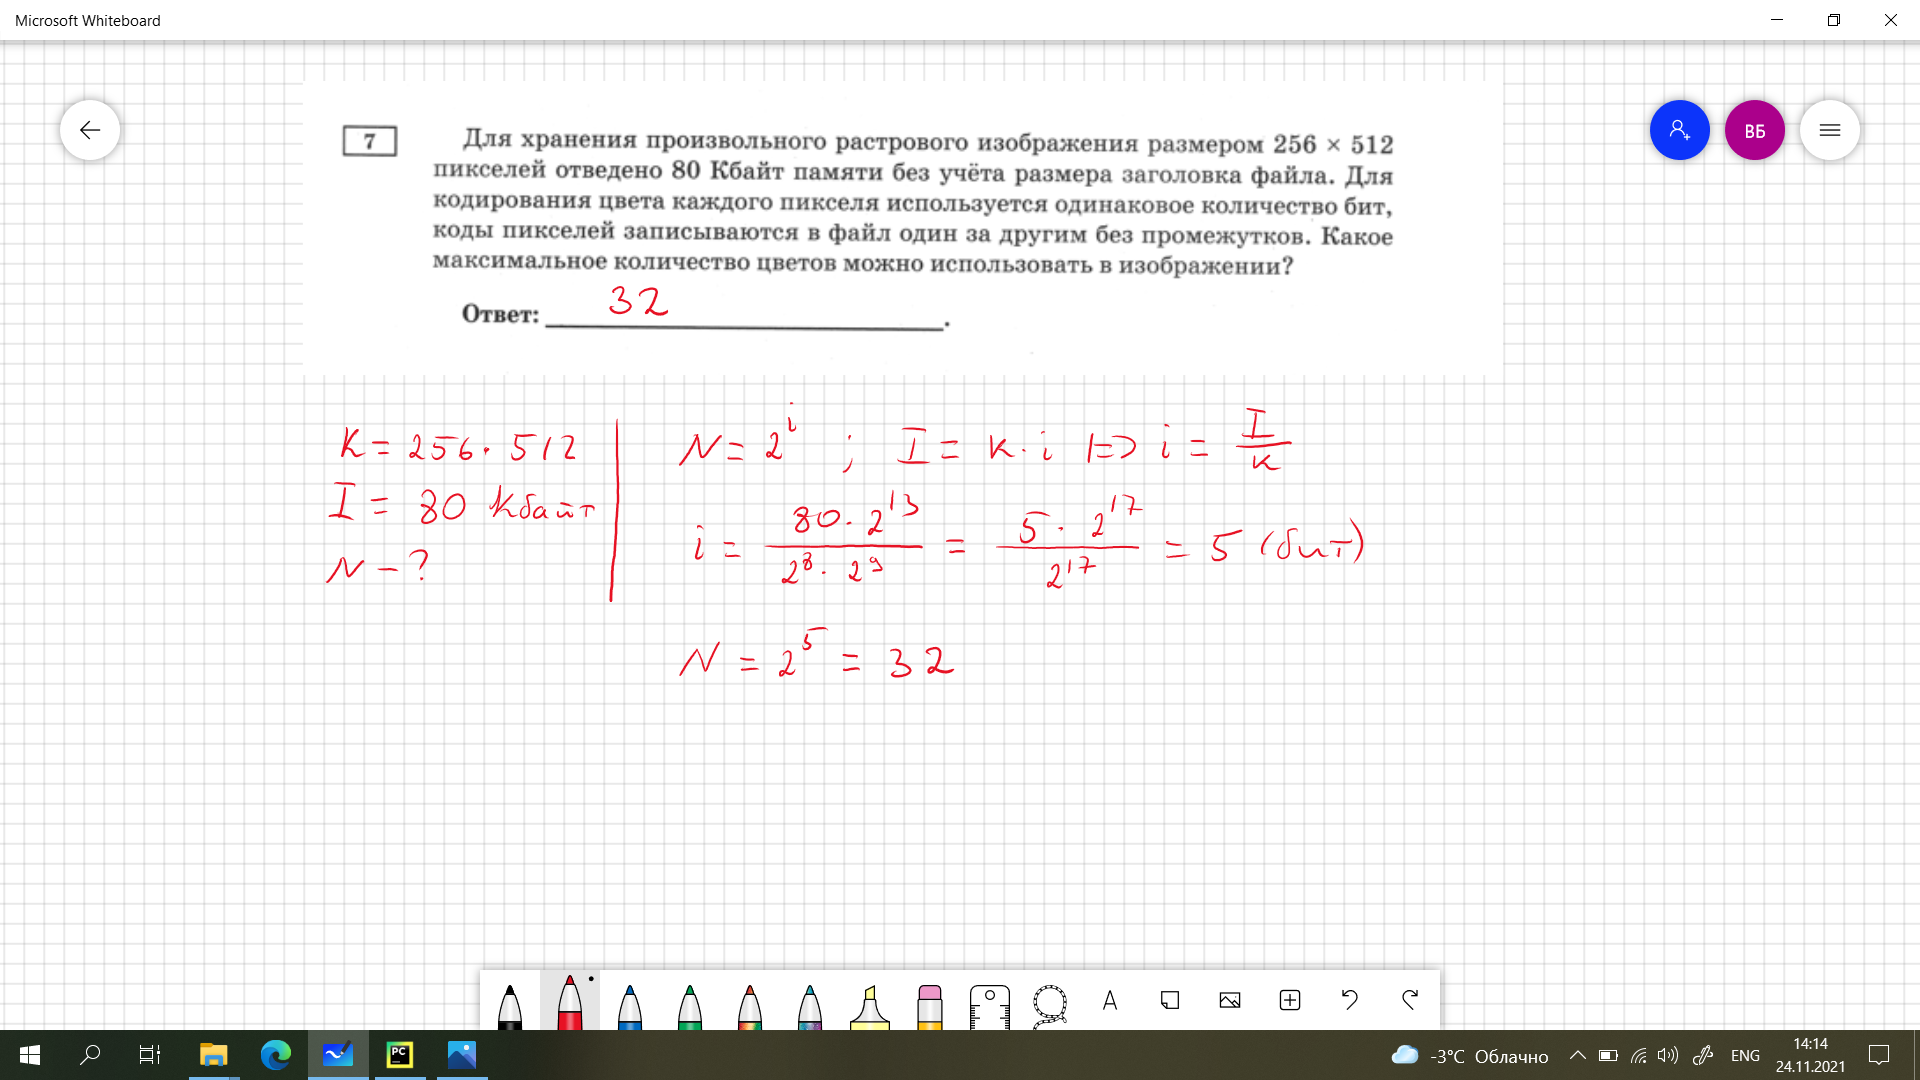 Microsoft Whiteboard
ВБ
7
Для хранения произвольного растрового изображения размером 256 × 512
пикселей отведено 80 Кбайт памяти без учёта размера заголовка файла. Для
кодирования цвета каждого пикселя используется одинаковое количество бит,
коды пикселей записываются в файл один за другим без промежутков. Какое
максимальное количество цветов можно использовать в изображении?
Ответ: 32.
K = 256 · 512
I = 80 Кбайт
N – ?
N = 2^i ; I = K · i |=> i = I/K
i = (80 · 2^13)/(2^8 · 2^9) = (5 · 2^17)/(2^17) = 5 (бит)
N = 2^5 = 32
PC
-3°C Облачно
ENG
14:14
24.11.2021